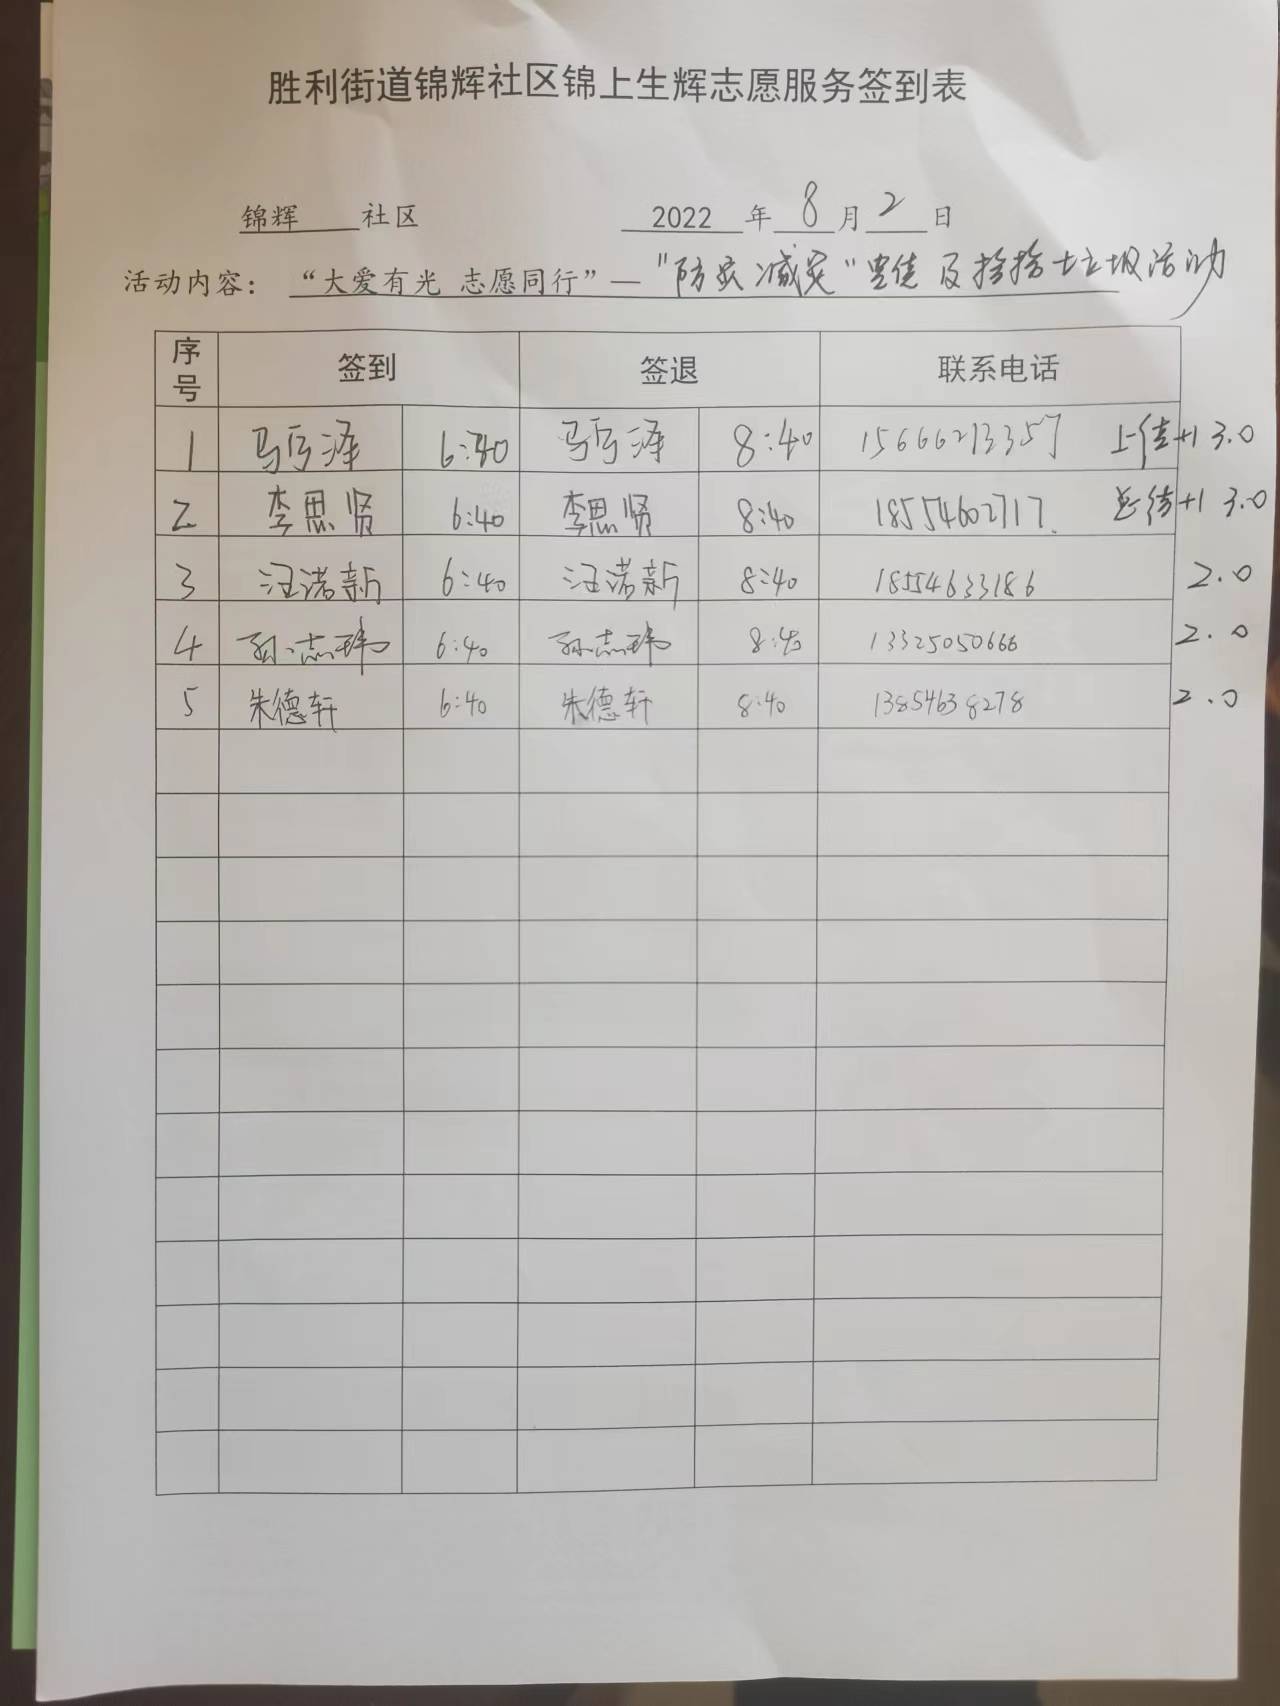 胜利街道锦辉社区锦上生辉志愿服务签到表
锦辉 社区 2022 年 8 月 2 日
活动内容： “大爱有光 志愿同行”— “防灾减灾”宣传及捡拾垃圾活动
序号 签到 签退 联系电话
1 马后泽 6:40 马后泽 8:40 15666213357 +1 3.0
2 李思贤 6:40 李思贤 8:40 18554602717. +1 3.0
3 汪诺新 6:40 汪诺新 8:40 18554633186 2.0
4 孙志玮 6:40 孙志玮 8:40 13325050666 2.0
5 朱德轩 6:40 朱德轩 8:40 13854638278 2.0